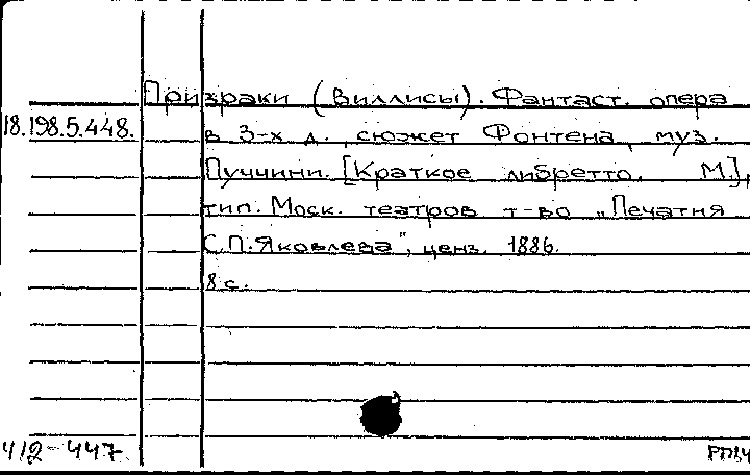 Призраки (Виллисы). Фантаст. опера
18.198.5.448. в 3-х д., сюжет Фонтена, муз.
Пуччини. [Краткое либретто. М.],
тип. Моск. театров т-во „Печатня
С.П. Яковлева", ценз. 1886.
8 с.
412-447